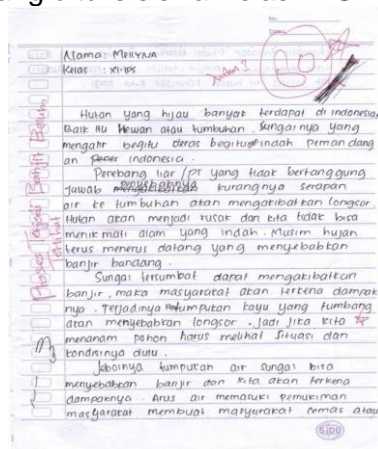 No.
Date
Nama : Meliyana
Kelas : XI-IPS
Judul?
80
Hutan yang hijau banyak terdapat di indonesia,
Baik itu Hewan atau tumbuhan. Sungainya yang
mengalir begitu deras begitu indah pemandang
an indonesia.
Penebang liar / PT yang tidak bertanggung
jawab penyebabnya kurangnya serapan
air ke tumbuhan akan mengakibatkan longsor.
Hutan akan menjadi rusak dan kita tidak bisa
menikmati alam yang indah. Musim hujan
terus menerus datang yang menyebabkan
banjir bandang.
Sungai tersumbat dapat mengakibatkan
banjir, maka masyarakat akan terkena dampak
nya. Terjadinya tumpukan kayu yang tumbang
akan menyebabkan longsor. Jadi jika kita
menanam pohon harus melihat situasi dan
kondisinya dulu.
tumpukan air sungai bisa
menyebabkan banjir dan kita akan terkena
dampaknya. Arus air memasuki pemukiman
masyarakat membuat masyarakat cemas atau
Proses Terjadi Banjir Belum
Terlihat
SIDU